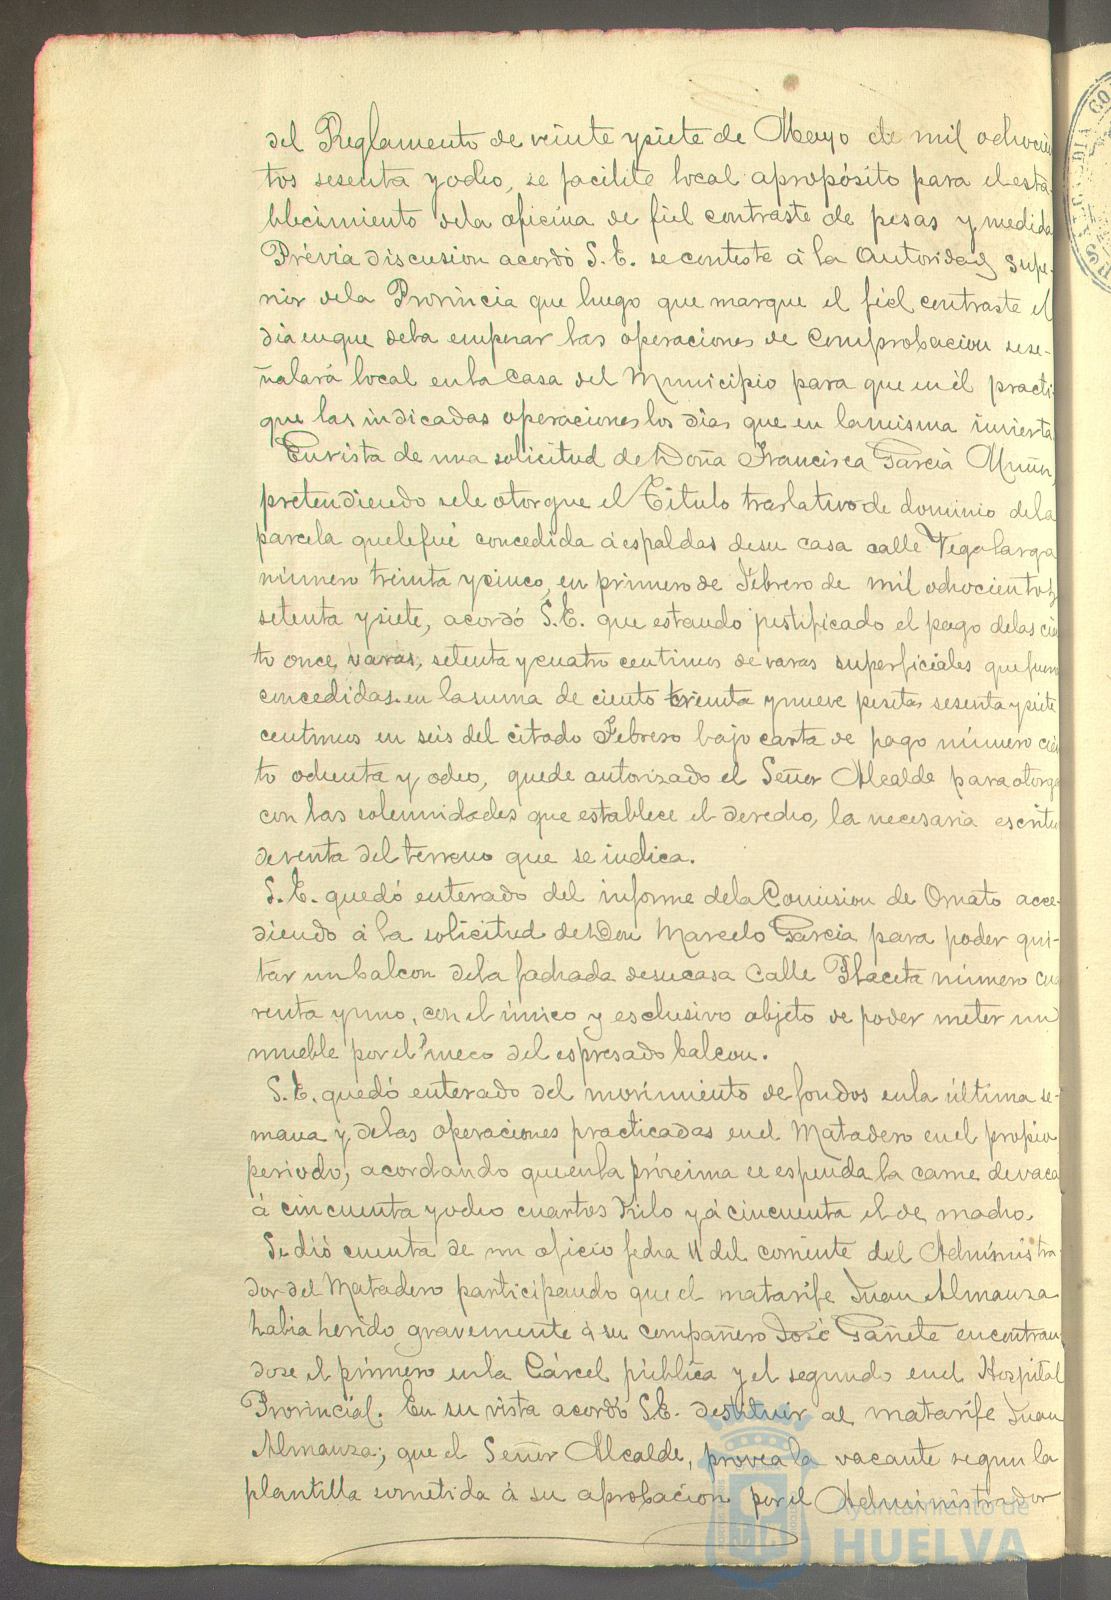 del Reglamento de veinte y siete de Mayo de mil ochocien
tos sesenta y ocho, se facilite local apropósito para el esta-
blecimiento dela oficina de fiel contraste de pesas y medida
Prévia discusion acordó S. E. se conteste á la Autoridad supe-
rior dela Provincia que luego que marque el fiel contraste el
dia en que deba empezar las operaciones de comprobacion se se-
ñalará local en la casa del Municipio para que en él practi
que las indicadas operaciones los dias que en la misma invierta
En vista de una solicitud de Doña Francisca Garcia Muñoz,
pretendiendo se le otorgue el Titulo traslativo de dominio dela
parcela que le fué concedida á espaldas de su casa calle Vega larga
número treinta y cinco, en primero de Febrero de mil ochocientos
setenta y siete, acordó S. E. que estando justificado el pago delas cien
to once varas, setenta y cuatro centimos de varas superficiales que fueron
concedidas en la suma de ciento treinta y nueve pesetas sesenta y siete
centimos en seis del citado Febrero bajo carta de pago número cien
to ochenta y ocho, quede autorizado el Señor Alcalde para otorga
con las solemnidades que establece el derecho, la necesaria escritu
de venta del terreno que se indica.
S. E. quedó enterado del informe dela Comision de Ornato acce-
diendo á la solicitud de Don Marcelo Garcia para poder qui-
tar un balcon dela fachada de su casa Calle Placeta número cua
renta y uno, con el único y esclusivo objeto de poder meter un
mueble por el hueco del espresado balcon.
S. E. quedó enterado del movimiento de fondos en la última se-
mana y delas operaciones practicadas en el Matadero en el propio
periodo, acordando que en la próxima se espenda la carne de vaca
á cincuenta y ocho cuartos kilo y á cincuenta el de macho.
Se dió cuenta de un oficio fecha 11 del corriente del Administra
dor del Matadero participando que el matarife Juan Almanza
habia herido gravemente á su compañero José Gañete encontran
dose el primero en la Cárcel pública y el segundo en el Hospital
Provincial. En su vista acordó S.E. destituir al matarife Juan
Almanza; que el Señor Alcalde, provea la vacante segun la
plantilla sometida á su aprobacion por el Administrador
Ayuntamiento de
HUELVA